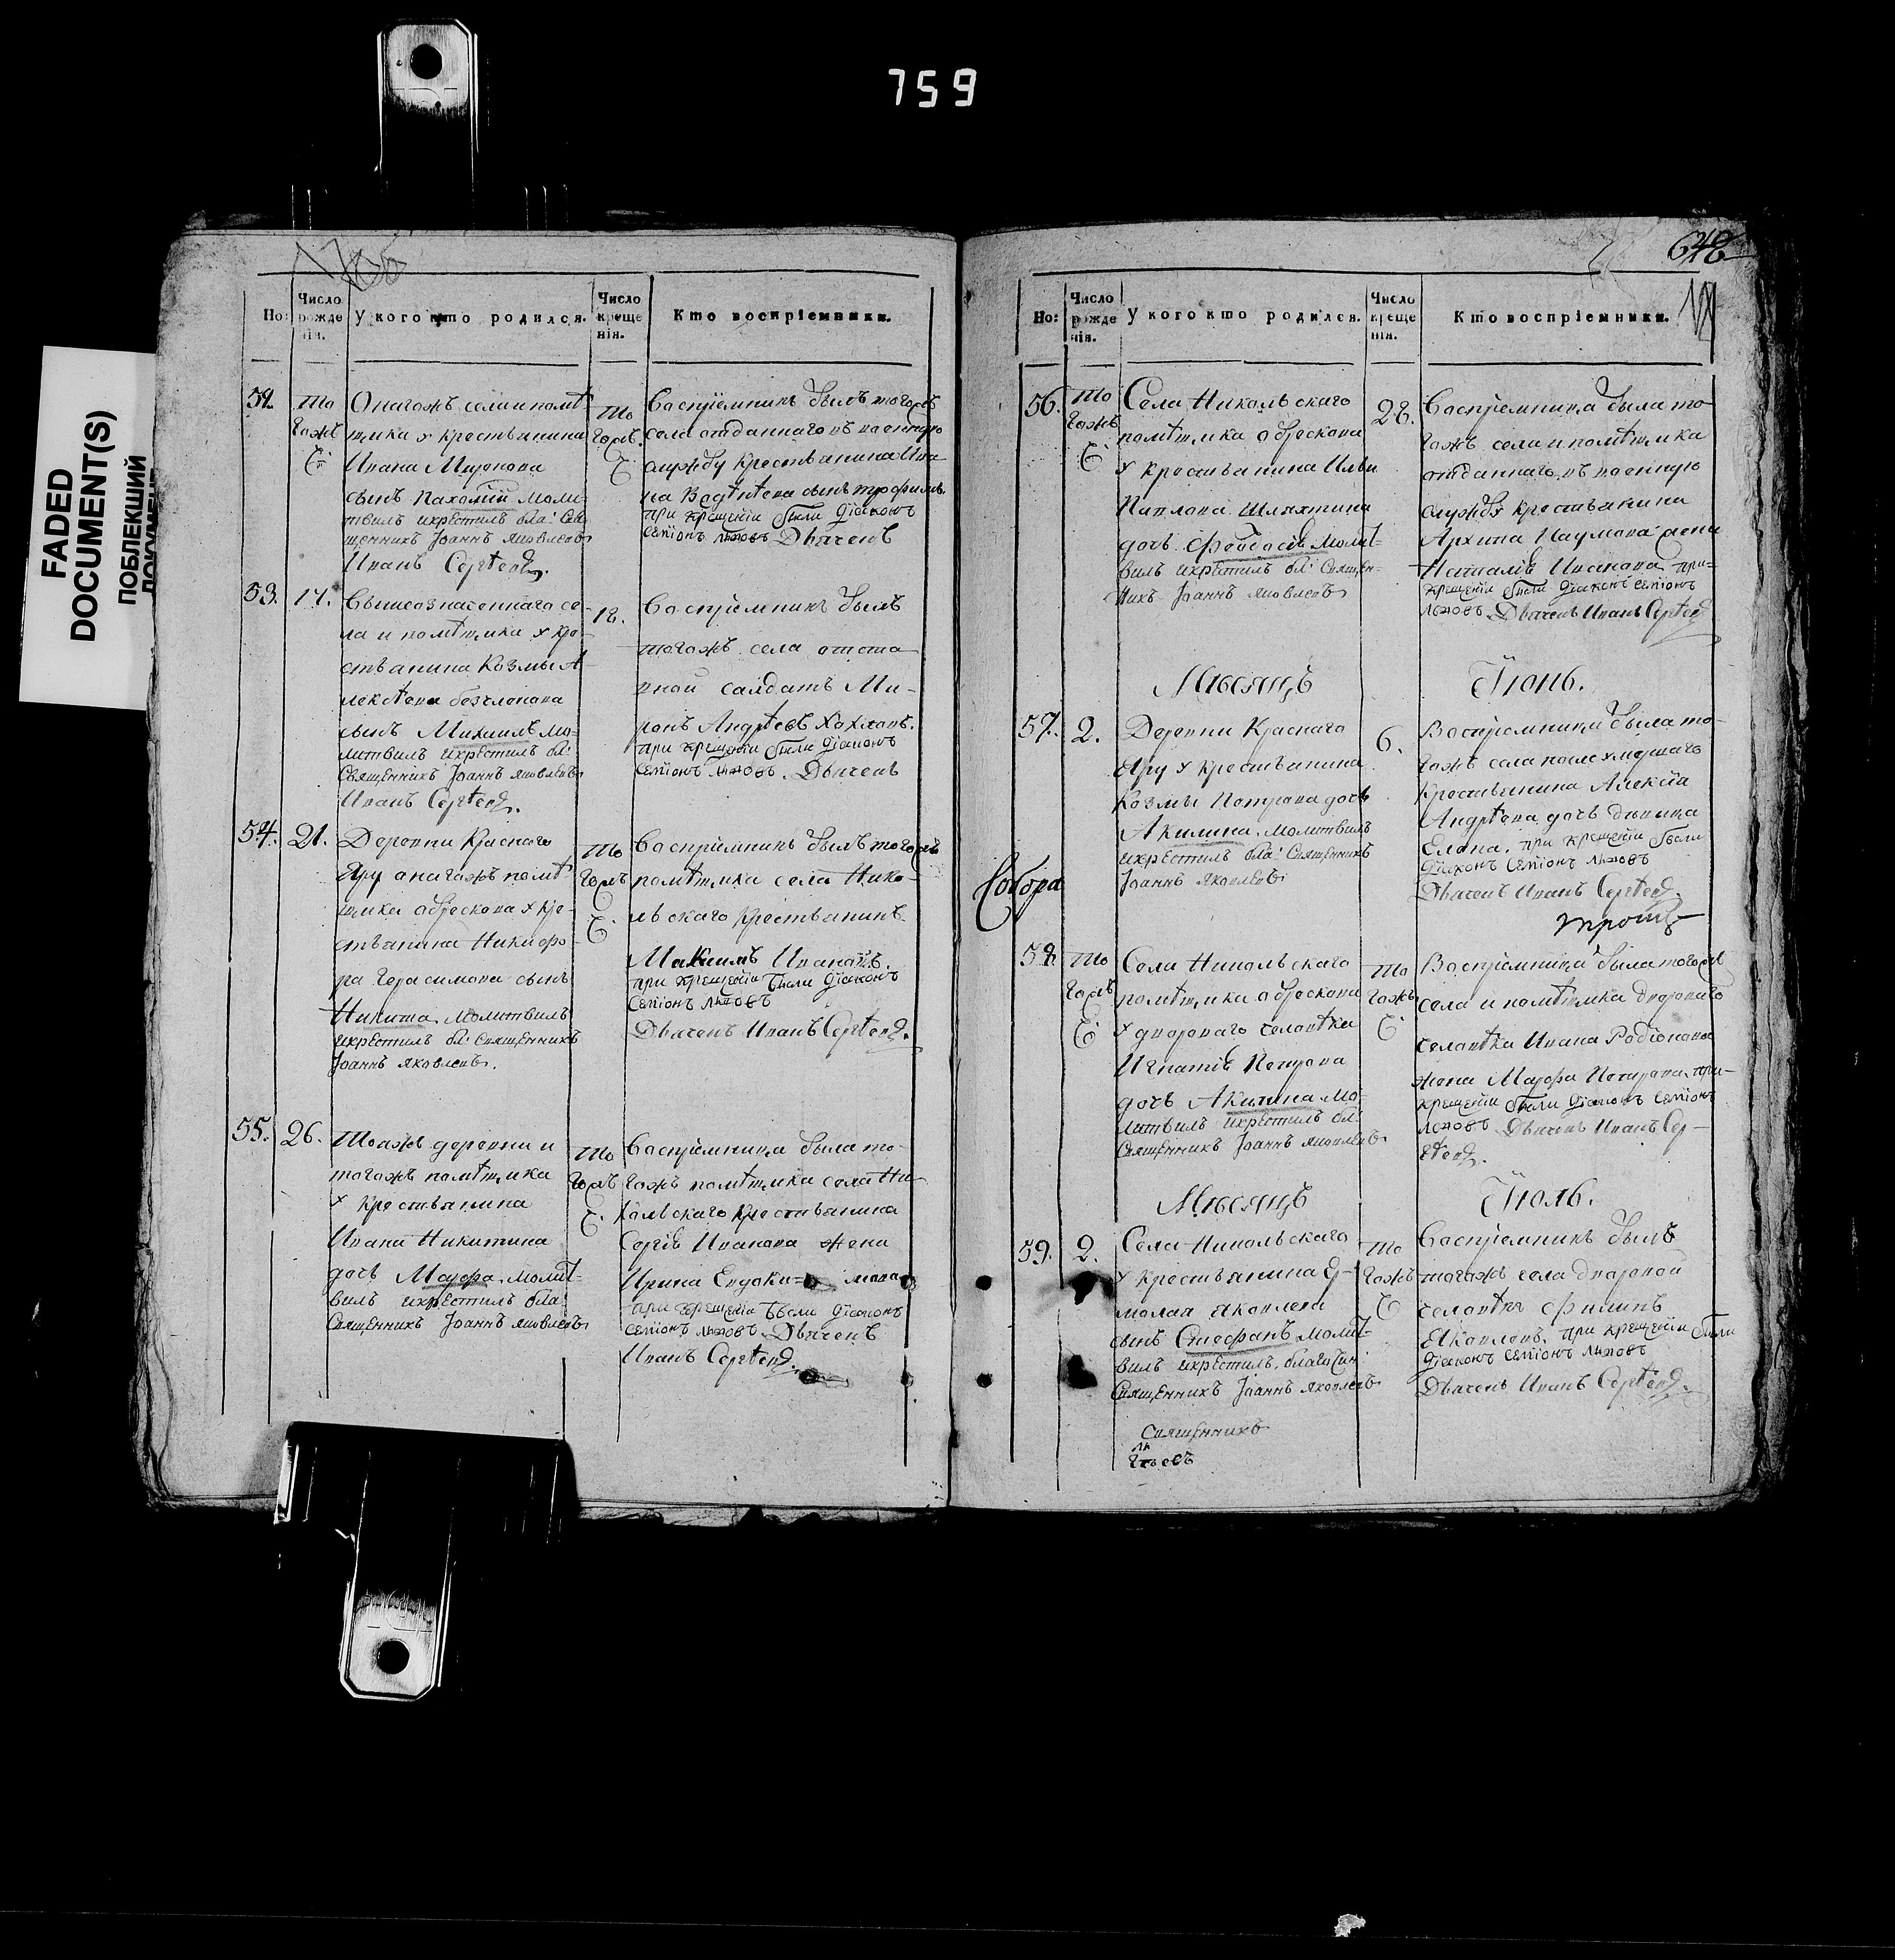 759
FADED
DOCUMENT(S)
ПОБЛЕКШИЙ
ДОКУМЕНТ
Но:
Число рожденія.
У кого кто родился.
Число крещенія.
Кто воспріемники.
52.
то
гожъ
Онагожъ села и помѣ-
щика у крестьянина
Ивана Миронова
сынъ Пахомій моли-
твилъ икрестилъ бла: Свя-
щенникъ Іоаннъ яковлевъ
Иванъ Сергѣевъ.
то
гожъ
Воспріемникъ былъ тогожъ
села отданнаго въ военную
службу крестьянина Ива-
на сынъ трофимъ
при крещеніи были діаконъ
семіонъ Дьячекъ
53.
17.
Вышеозначеннаго се-
ла и помѣщика у кре-
стьянина Козмы А-
лексѣева
сынъ Михаилъ мо-
литвилъ икрестилъ бл:
Священникъ Іоаннъ яковлевъ
Иванъ Сергѣевъ.
18.
Воспріемникъ былъ
тогожъ села отста
вной салдатъ Ми-
ронъ Андрѣевъ Хохловъ.
при крещеніи были діаконъ
семіонъ Дьячекъ
54.
21.
Деревни Краснаго
Яру онагожъ помѣ
щика обрескова у кре-
стьянина Никифо-
ра Герасимова сынъ
Никита молитвилъ
икрестилъ бл: Священникъ
Іоаннъ яковлевъ.
то
гожъ
Воспріемникъ былъ тогожъ
помѣщика села Нико-
льскаго крестьянинъ
Максимъ Ивановъ.
при крещеніи были діаконъ
семіонъ
Дьячекъ Иванъ Сергѣевъ.
55.
26.
тояжъ деревни и
тогожъ помѣщика
у крестьянина
Ивана Никитина
дочь Марфа молит-
вилъ икрестилъ бла:
Священникъ Іоаннъ яковлевъ
то
гожъ
Воспріемница была то-
гожъ помѣщика села Ни-
кольскаго крестьянина
Сергія Иванова жена
Ирина Евдоки- мова
при крещеніи были діаконъ
семіонъ Дьячекъ
Иванъ Сергѣевъ.
648
Но:
Число рожденія.
У кого кто родился.
Число крещенія.
Кто воспріемники.
56.
то
гожъ
Села Никольскаго
помѣщика обрескова
у крестьянина Ильи
дочь Феодосія молит-
вилъ икрестилъ бл: Священ-
никъ Іоаннъ яковлевъ
28.
Воспріемница была то-
гожъ села и помѣщика
отданнаго въ военную
службу крестьянина
Архипа Наумова жена
Наталія Иванова при-
крещеніи были діаконъ семіонъ
Дьячекъ Иванъ Сергѣевъ
Мѣсяцъ Іюнь.
57.
2.
Деревни Краснаго
Яру у крестьянина
Козмы Петрова дочь
Акилина молитвилъ
икрестилъ бла: Священникъ
Іоаннъ яковлевъ
6.
Воспріемница была то-
гожъ села
крестьянина Алексія
Андрѣева дочь дѣвица
Елена. при крещеніи были
діаконъ семіонъ
Дьячекъ Иванъ Сергѣевъ.
Собора
58.
то
гожъ
Села Никольскаго
помѣщика обрескова
у двороваго человѣка
Игнатія Петрова
дочь Акилина мо-
литвилъ икрестилъ бл:
Священникъ Іоаннъ яковлевъ
то
гожъ
Воспріемница была тогожъ
села и помѣщика двороваго
человѣка Ивана Родіонова
жена Марфа Петрова при-
крещеніи были діаконъ семіонъ
Дьячекъ Иванъ Сер-
гѣевъ.
Мѣсяцъ Іюль.
59.
2.
Села Никольскаго
у крестьянина Ер-
молая Яковлева
сынъ Стефанъ молит-
вилъ икрестилъ благочин
Священникъ Іоаннъ яковлевъ
то
гожъ
Воспріемникъ былъ
тогожъ села дворовой
человѣкъ Филипъ
Яковлевъ. при крещеніи были
діаконъ семіонъ
Дьячекъ Иванъ Сергѣевъ.
Священникъ